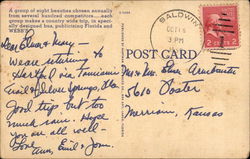 A group of eight beauties chosen annually
from several hundred competitors...each
group makes a country wide trip, in speci-
ally designed bus, publicizing Florida and
WEBB'S
BALDWIN
OCT 18
3 PM
2¢ 2¢
POST CARD
Dear Elsie & Henry
We are returning to
Hartford via Tamiami
Trail & Silver Springs, Fla.
Good trip but too
much rain. Hope
you are all well-
Love
Ann, Emil & Jom.
Mr & Mrs. Elsie Armbruster
5610 Foster
Merriam, Kansas